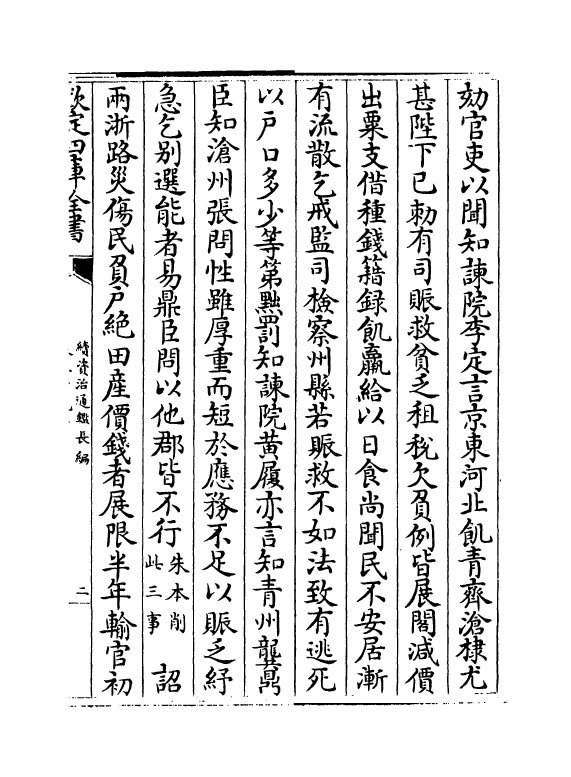 劾官吏以聞知諫院李定言京東河北飢青齊滄棣尤
甚陛下已勑有司賑救貧乏租稅欠負例皆展閣減價
出粟支借種錢籍録飢羸給以日食尚聞民不安居漸
有流散乞戒監司檢察州縣若賑救不如法致有逃死
以戸口多少等第黜罰知諫院黄履亦言知青州龔鼎
臣知滄州張問性雖厚重而短於應務不足以賑乏紓
急乞别選能者易鼎臣問以他郡皆不行朱本削此三事 詔
兩浙路災傷民負戸絶田産價錢者展限半年輸官初
欽定四庫全書
續資治通鑑長編
二